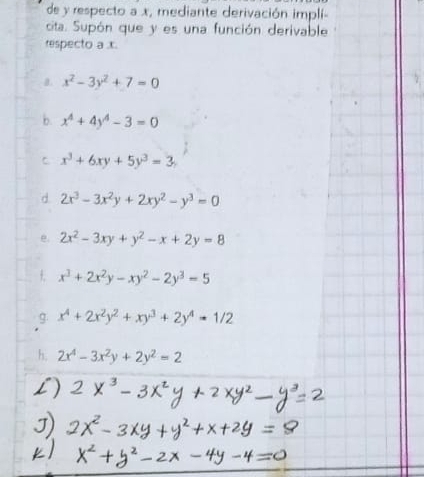 de y respecto a x, mediante derivación implí-
cita. Supón que y es una función derivable
respecto a x.
a. x² - 3y² + 7 = 0
b. x⁴ + 4y⁴ - 3 = 0
c. x³ + 6xy + 5y³ = 3,
d. 2x³ - 3x²y + 2xy² - y³ = 0
e. 2x² - 3xy + y² - x + 2y = 8
f. x³ + 2x²y - xy² - 2y³ = 5
g. x⁴ + 2x²y² + xy³ + 2y⁴ = 1/2
h. 2x⁴ - 3x²y + 2y² = 2
i) 2x³ - 3x²y + 2xy² - y³ = 2
J) 2x² - 3xy + y² + x + 2y = 8
k) x² + y² - 2x - 4y - 4 = 0